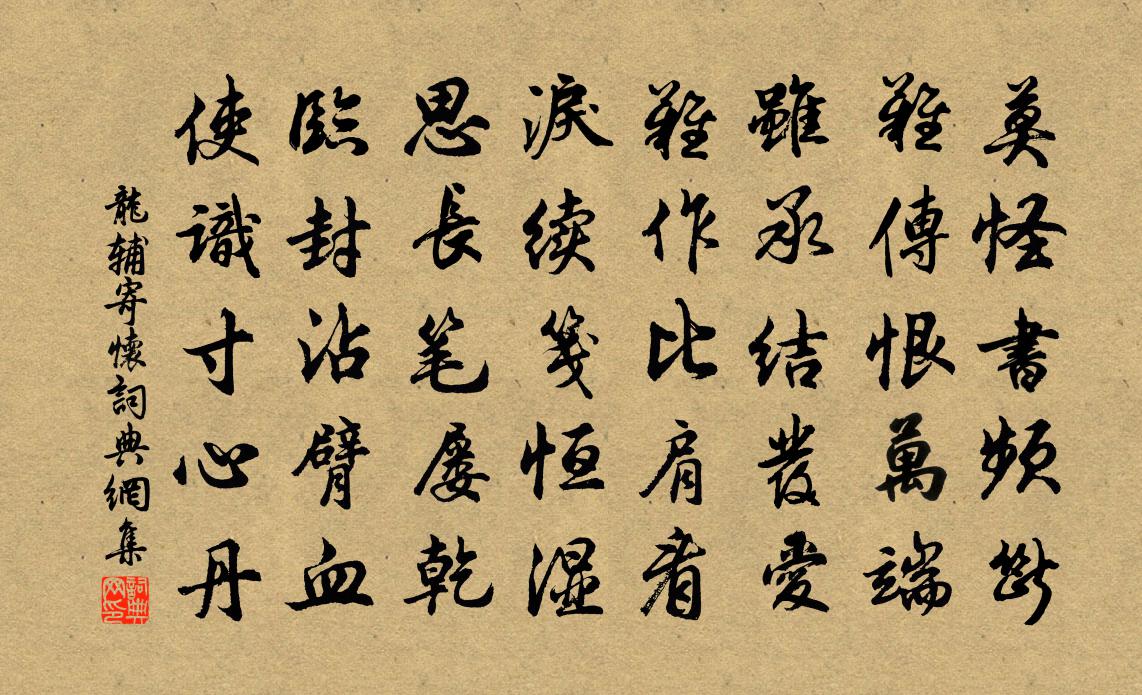 莫怪書頻斷
難傳恨萬端
雖承結發愛
難作比肩看
淚續箋恒濕
思長笔屡乾
臨封沾臂血
使識寸心丹
龍辅寄懷詞典網集
詞典网印